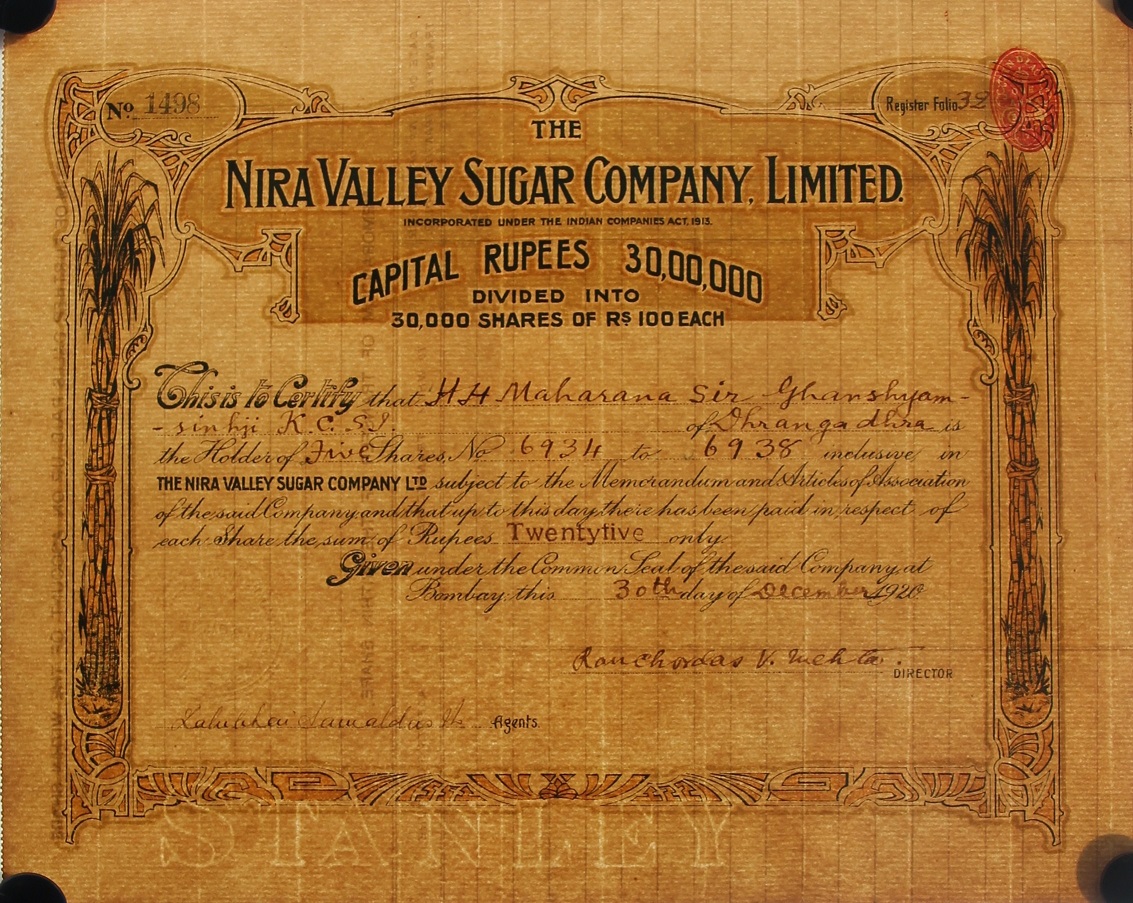 No. 1498
Register Folio
THE
NIRA VALLEY SUGAR COMPANY, LIMITED.
INCORPORATED UNDER THE INDIAN COMPANIES ACT, 1913.
CAPITAL RUPEES 30,00,000
DIVIDED INTO
30,000 SHARES OF RS 100 EACH
This is to Certify that H H Maharana Sir Ghanshyam-
-sinhji K.C.S.I. of Dhrangadhra is
the Holder of Five Shares, No 6934 to 6938 inclusive in
THE NIRA VALLEY SUGAR COMPANY LTD subject to the Memorandum and Articles of Association
of the said Company and that up to this day there has been paid in respect of
each Share the sum of Rupees Twentyfive only.
Given under the Common Seal of the said Company at
Bombay, this 30th day of December 1920
Ranchordas V. Mehta.
DIRECTOR
Agents.
STANLEY